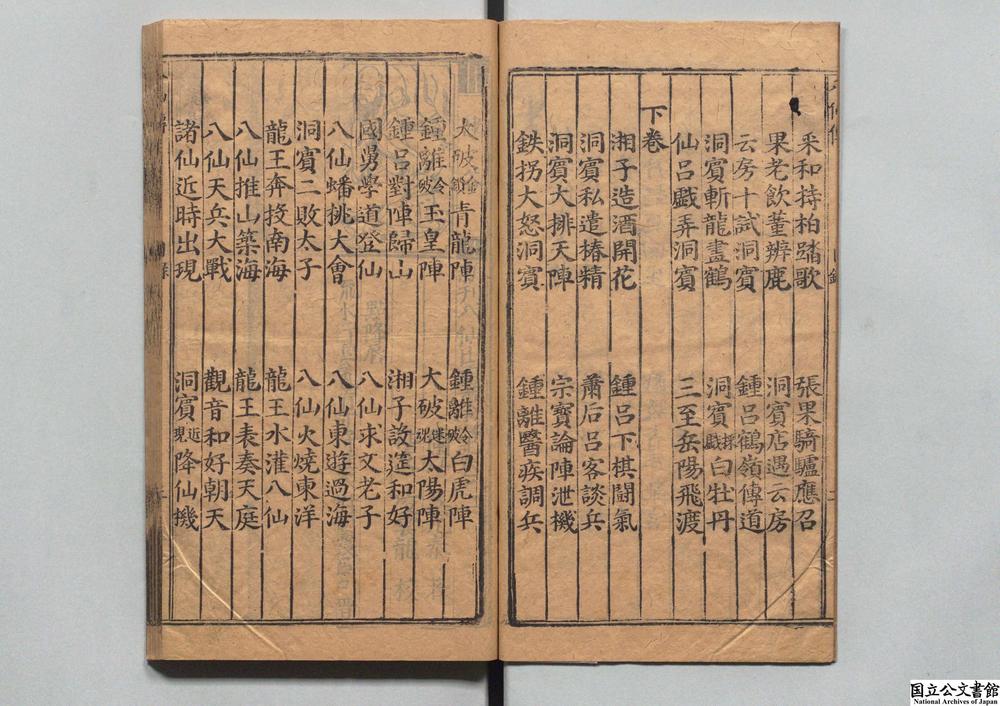 采和持柏踏歌　張果騎驢應召
果老飲菫辨鹿　洞賓店遇云房
云房十試洞賓　鍾呂鶴嶺傳道
洞賓斬龍畫鶴　洞賓採戲白牡丹
仙呂戲弄洞賓　三至岳陽飛渡
下卷
湘子造酒開花　鍾呂下棋鬪氣
洞賓私遣椿精　蕭后呂客談兵
洞賓大排天陣　宗寶論陣泄機
鉄拐大怒洞賓　鍾離醫疾調兵
大破金鎖青龍陣　鍾離令破白虎陣
鍾離令破玉皇陣　大破迷魂太陽陣
鍾呂對陣歸山　湘子設筵和好
國舅學道登仙　八仙求文老子
八仙蟠挑大會　八仙東遊過海
洞賓二敗太子　八仙火燒東洋
龍王奔投南海　龍王水灌八仙
八仙推山築海　龍王表奏天庭
八仙天兵大戰　觀音和好朝天
諸仙近時出現　洞賓近現降仙機
国立公文書館
National Archives of Japan